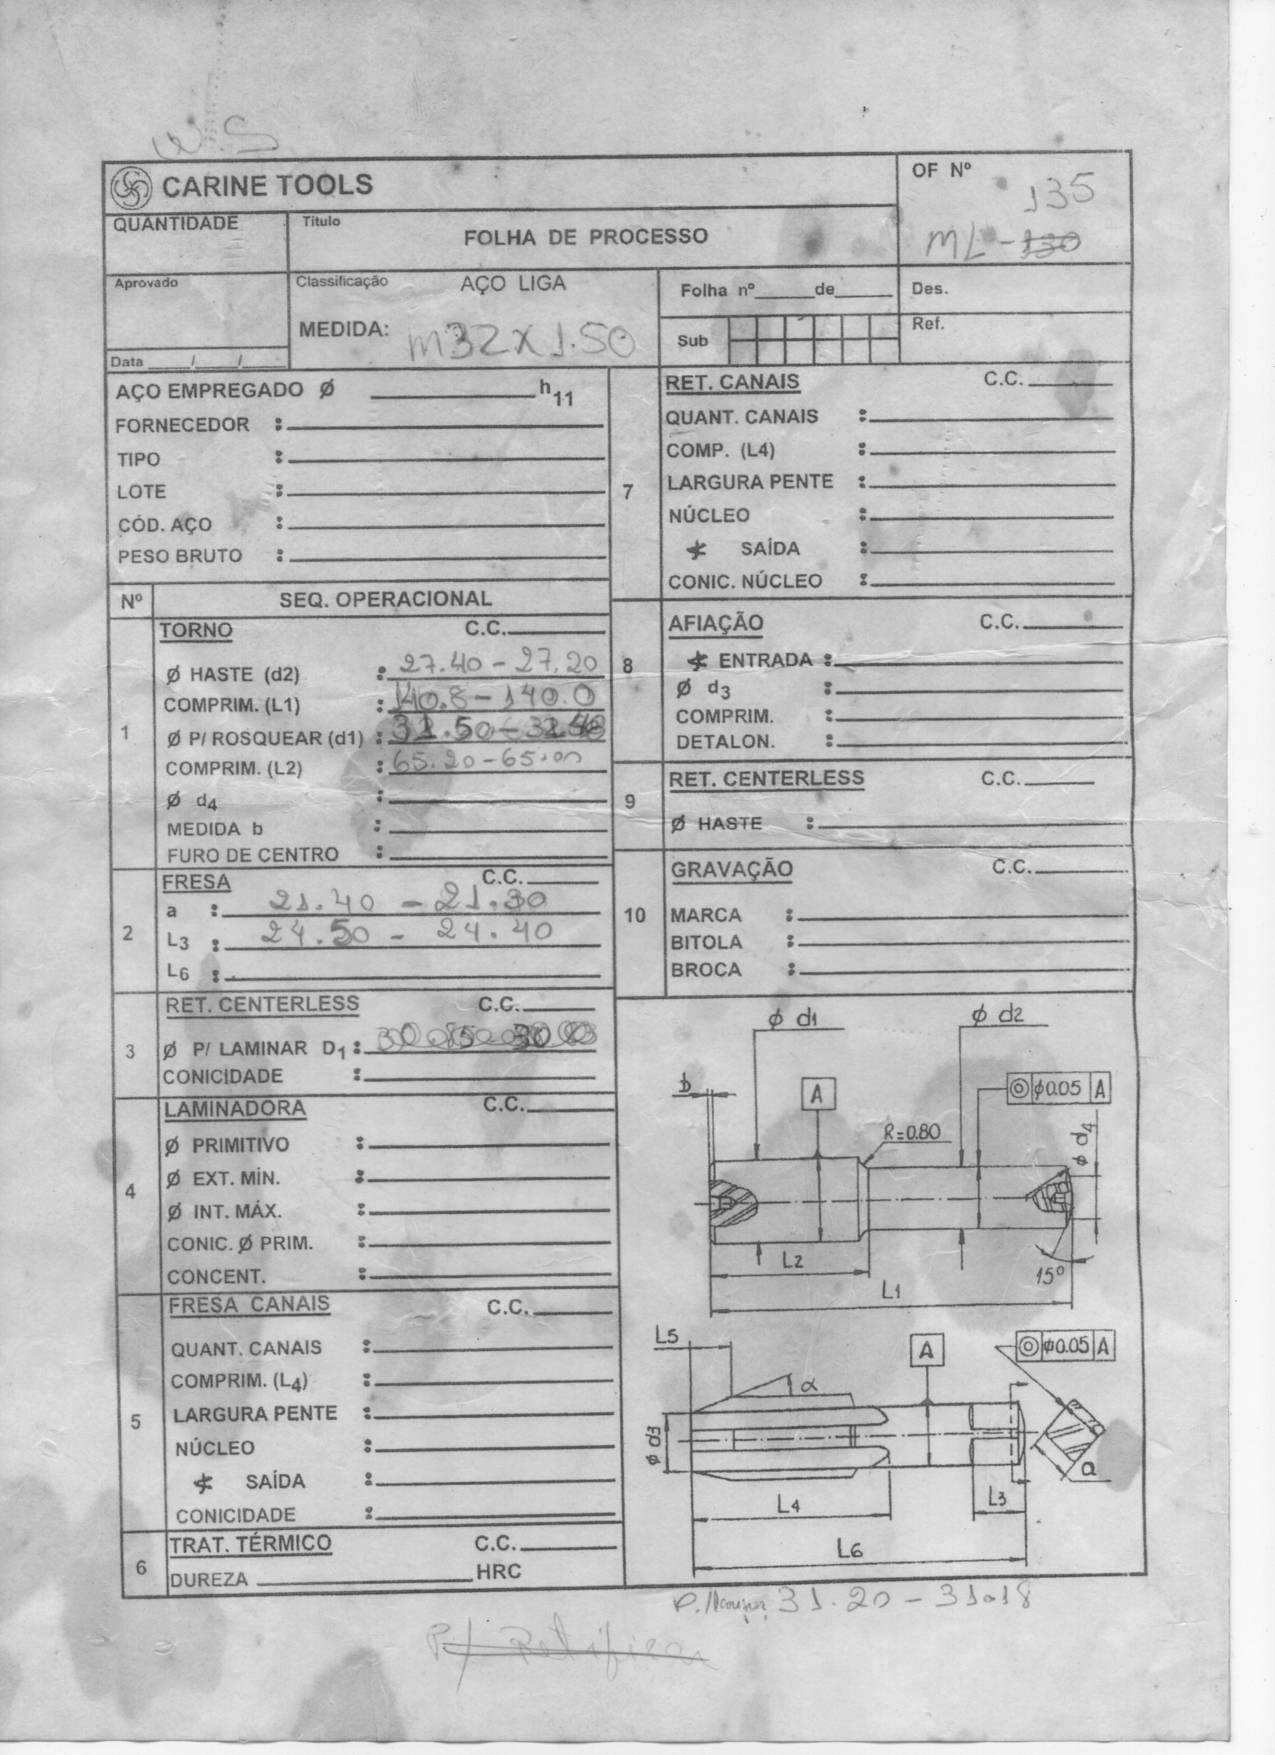 W.S
CARINE TOOLS
OF Nº
135
ML - 130
QUANTIDADE
Título
FOLHA DE PROCESSO
Aprovado
Classificação AÇO LIGA
MEDIDA: M32 X 1.50
Data ___/___/___
Folha nº_____de_____
Des.
Sub
Ref.
AÇO EMPREGADO Ø __________ h11
FORNECEDOR :
TIPO :
LOTE :
CÓD. AÇO :
PESO BRUTO :
Nº SEQ. OPERACIONAL
1
TORNO C.C.
Ø HASTE (d2) : 27.40 - 27.20
COMPRIM. (L1) : 140.8 - 140.0
Ø P/ ROSQUEAR (d1) :
COMPRIM. (L2) : 65.20 - 65.00
Ø d4 :
MEDIDA b :
FURO DE CENTRO :
2
FRESA C.C.
a : 21.40 - 21.30
L3 : 24.50 - 24.40
L6 :
3
RET. CENTERLESS C.C.
Ø P/ LAMINAR D1 :
CONICIDADE :
4
LAMINADORA C.C.
Ø PRIMITIVO :
Ø EXT. MÍN. :
Ø INT. MÁX. :
CONIC. Ø PRIM. :
CONCENT. :
5
FRESA CANAIS C.C.
QUANT. CANAIS :
COMPRIM. (L4) :
LARGURA PENTE :
NÚCLEO :
SAÍDA :
CONICIDADE :
6
TRAT. TÉRMICO C.C.
DUREZA __________ HRC
7
RET. CANAIS C.C.
QUANT. CANAIS :
COMP. (L4) :
LARGURA PENTE :
NÚCLEO :
SAÍDA :
CONIC. NÚCLEO :
8
AFIAÇÃO C.C.
ENTRADA :
Ø d3 :
COMPRIM. :
DETALON. :
9
RET. CENTERLESS C.C.
Ø HASTE :
10
GRAVAÇÃO C.C.
MARCA :
BITOLA :
BROCA :
Ø d1
Ø d2
b
A
Ø0.05 A
R=0.80
Ø d4
L2
15º
L1
L5
A
Ø0.05 A
α
Ø d3
a
L4
L3
L6
31.20 - 31.18
P/ Retifica